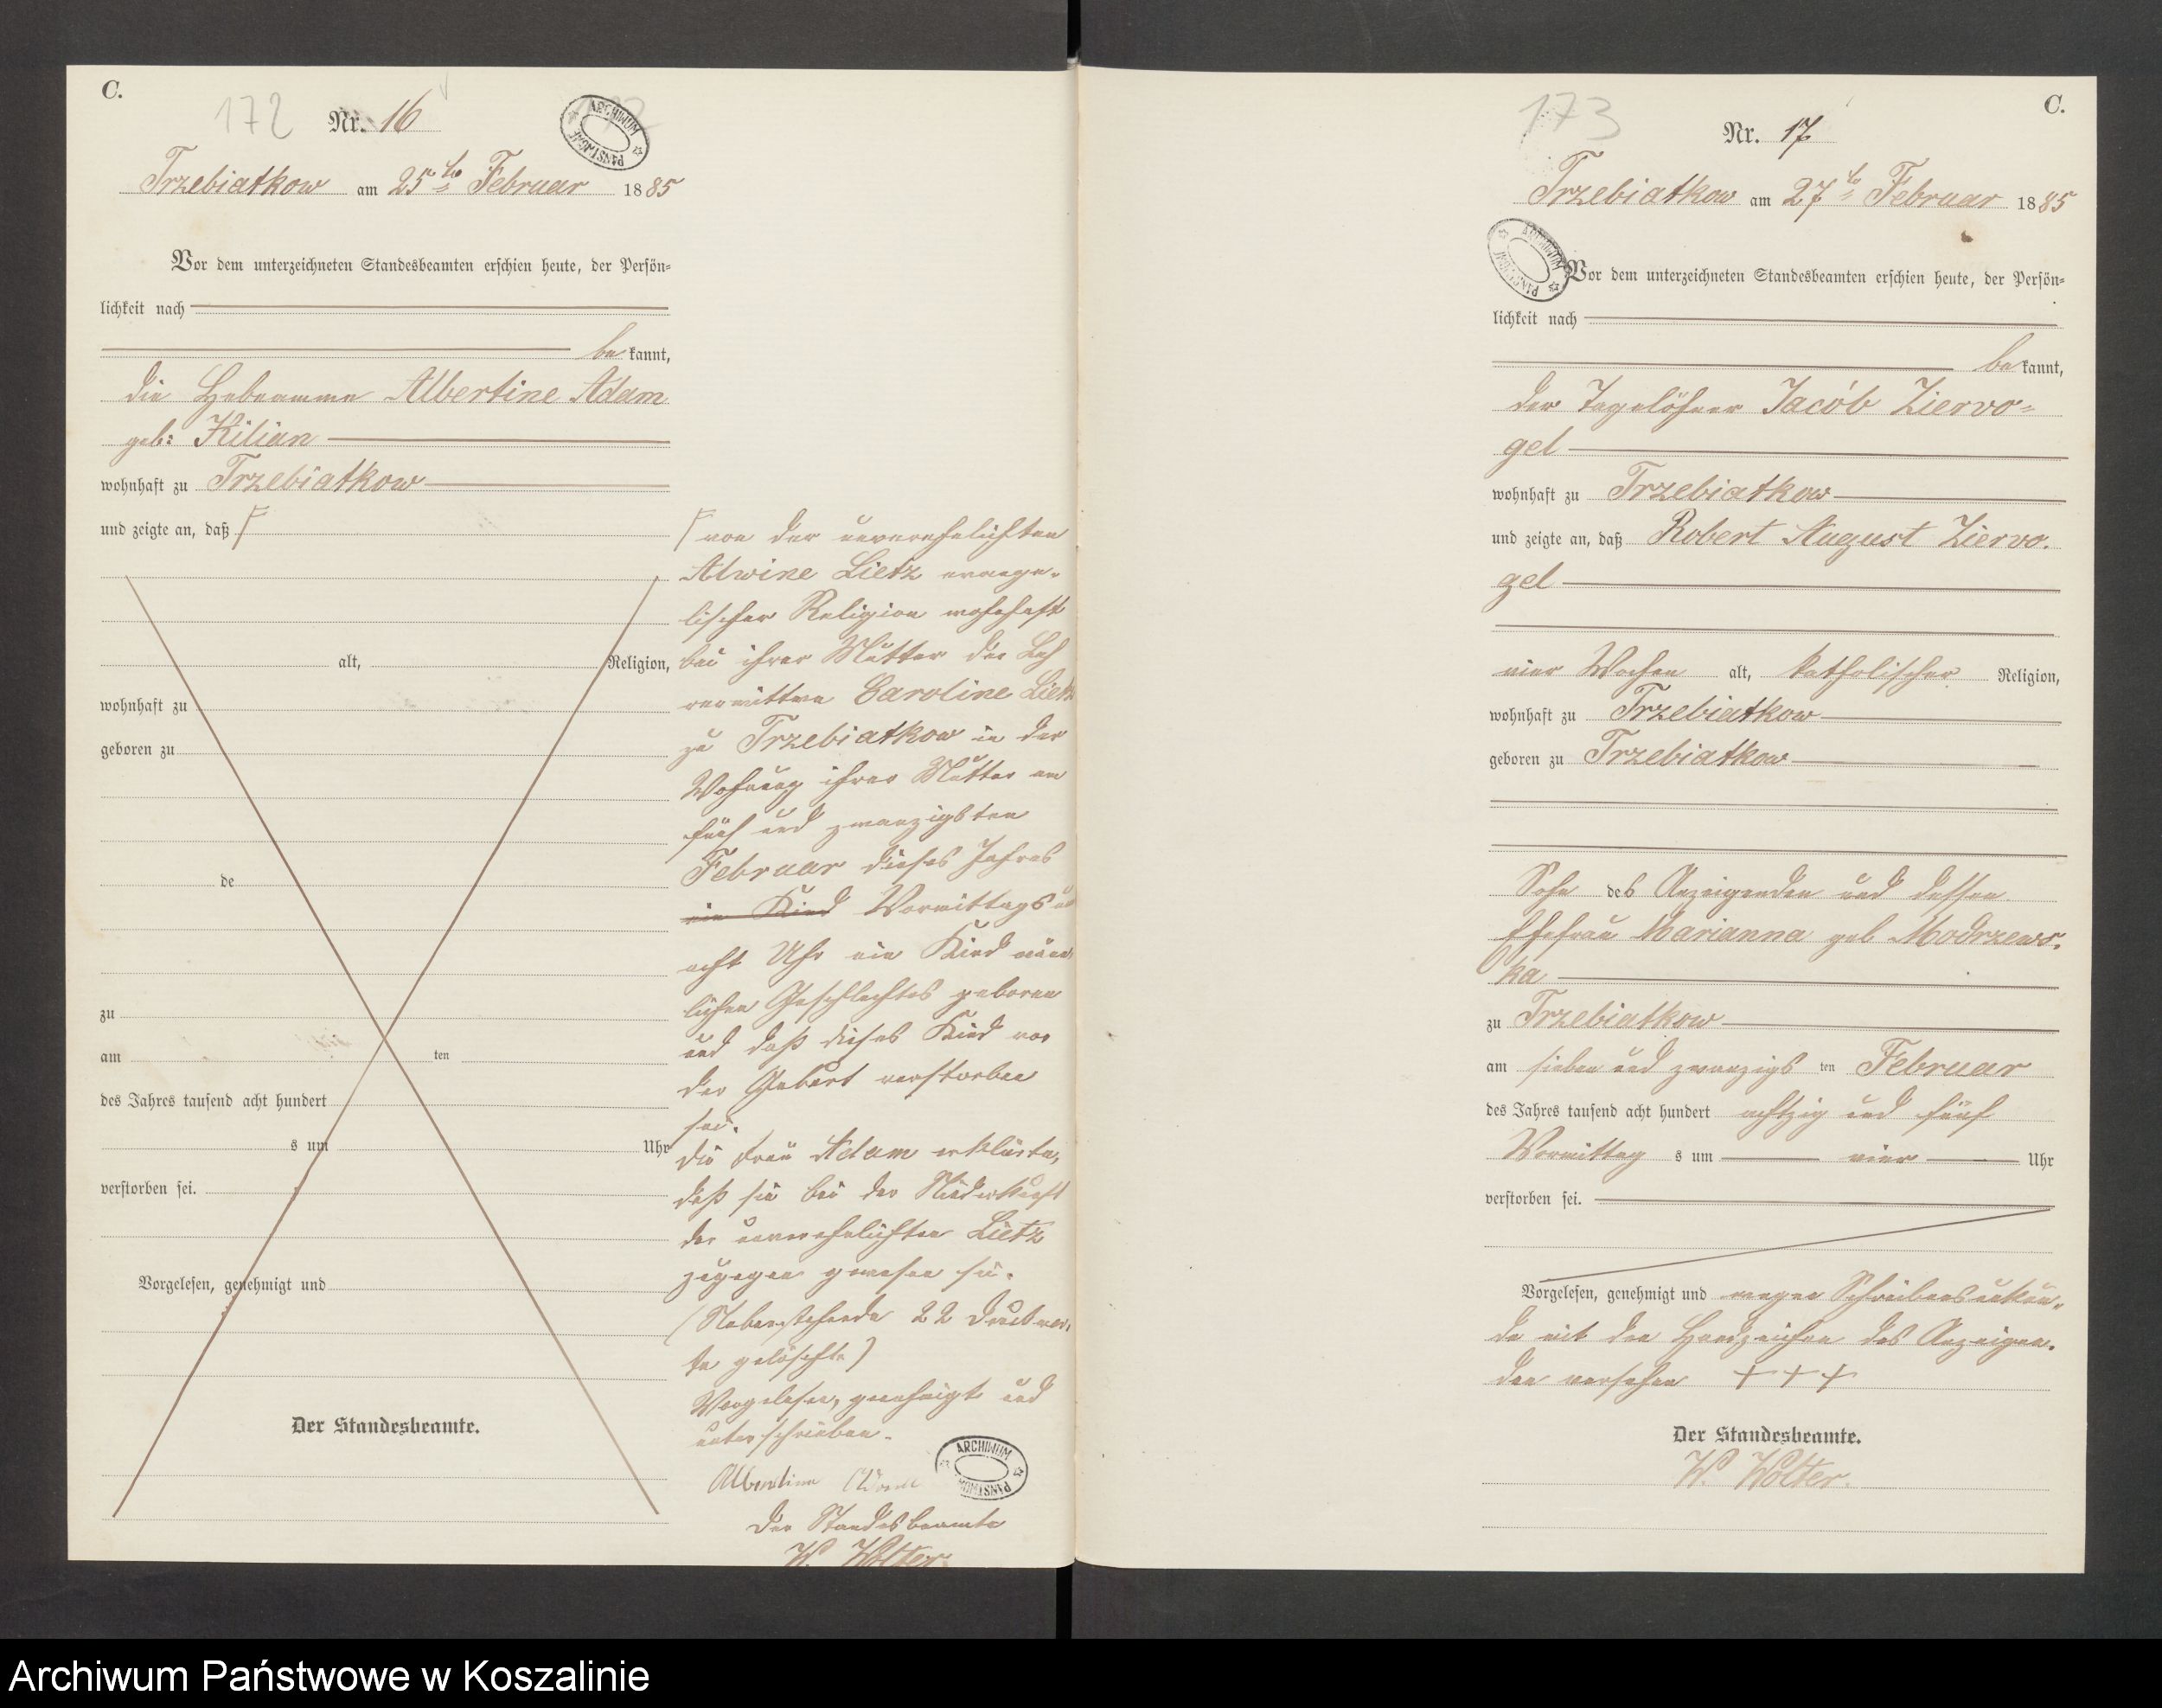 C.
172
Nr. 16
ARCHIWUM PAŃSTWOWE
Trzebiatkow am 25ten Februar 1885
Vor dem unterzeichneten Standesbeamten erschien heute, der Persön=
lichkeit nach
be kannt,
die Hebeamme Albertine Adam
geb: Kilian
wohnhaft zu Trzebiatkow
und zeigte an, daß
alt, Religion,
wohnhaft zu
geboren zu
de
zu
am ten
des Jahres tausend acht hundert
s um Uhr
verstorben sei.
Vorgelesen, genehmigt und
Der Standesbeamte.
von der unverehelichten
Alwine Lietz evange-
lischer Religion wohnhaft
bei ihrer Mutter der
verwittwe Caroline Lietz
zu Trzebiatkow in der
Wohnung ihrer Mutter am
fünf und zwanzigsten
Februar dieses Jahres
ein Kind Vormittags um
acht Uhr ein Kind männ
lichen Geschlechtes geboren
und daß dieses Kind vor
der Geburt verstorben
sei.
Die Frau Adam erklärte,
daß sie bei der Niederkunft
der unverehelichten Lietz
zugegen gewesen sei.
(Nebenstehende 22 Druckwor-
te gelöscht)
Vorgelesen, genehmigt und
unterschrieben.
Albertine Adam
ARCHIWUM PAŃSTWOWE
Der Standesbeamte
W. Wolter.
C.
173
Nr. 17
Trzebiatkow am 27t Februar 1885
ARCHIWUM PAŃSTWOWE
Vor dem unterzeichneten Standesbeamten erschien heute, der Persön=
lichkeit nach
be kannt,
der Tagelöhner Jacob Ziervo=
gel
wohnhaft zu Trzebiatkow
und zeigte an, daß Robert August Ziervo-
gel
vier Wochen alt, katholischer Religion,
wohnhaft zu Trzebiatkow
geboren zu Trzebiatkow
Sohn des Anzeigenden und dessen
Ehefrau Marianna geb Modrzews-
ka
zu Trzebiatkow
am sieben und zwanzigs ten Februar
des Jahres tausend acht hundert achtzig und fünf
Vormittag s um vier Uhr
verstorben sei.
Vorgelesen, genehmigt und wegen Schreibensunkun-
de mit den Handzeichen des Anzeigen-
den versehen + + +
Der Standesbeamte.
W. Wolter.
Archiwum Państwowe w Koszalinie